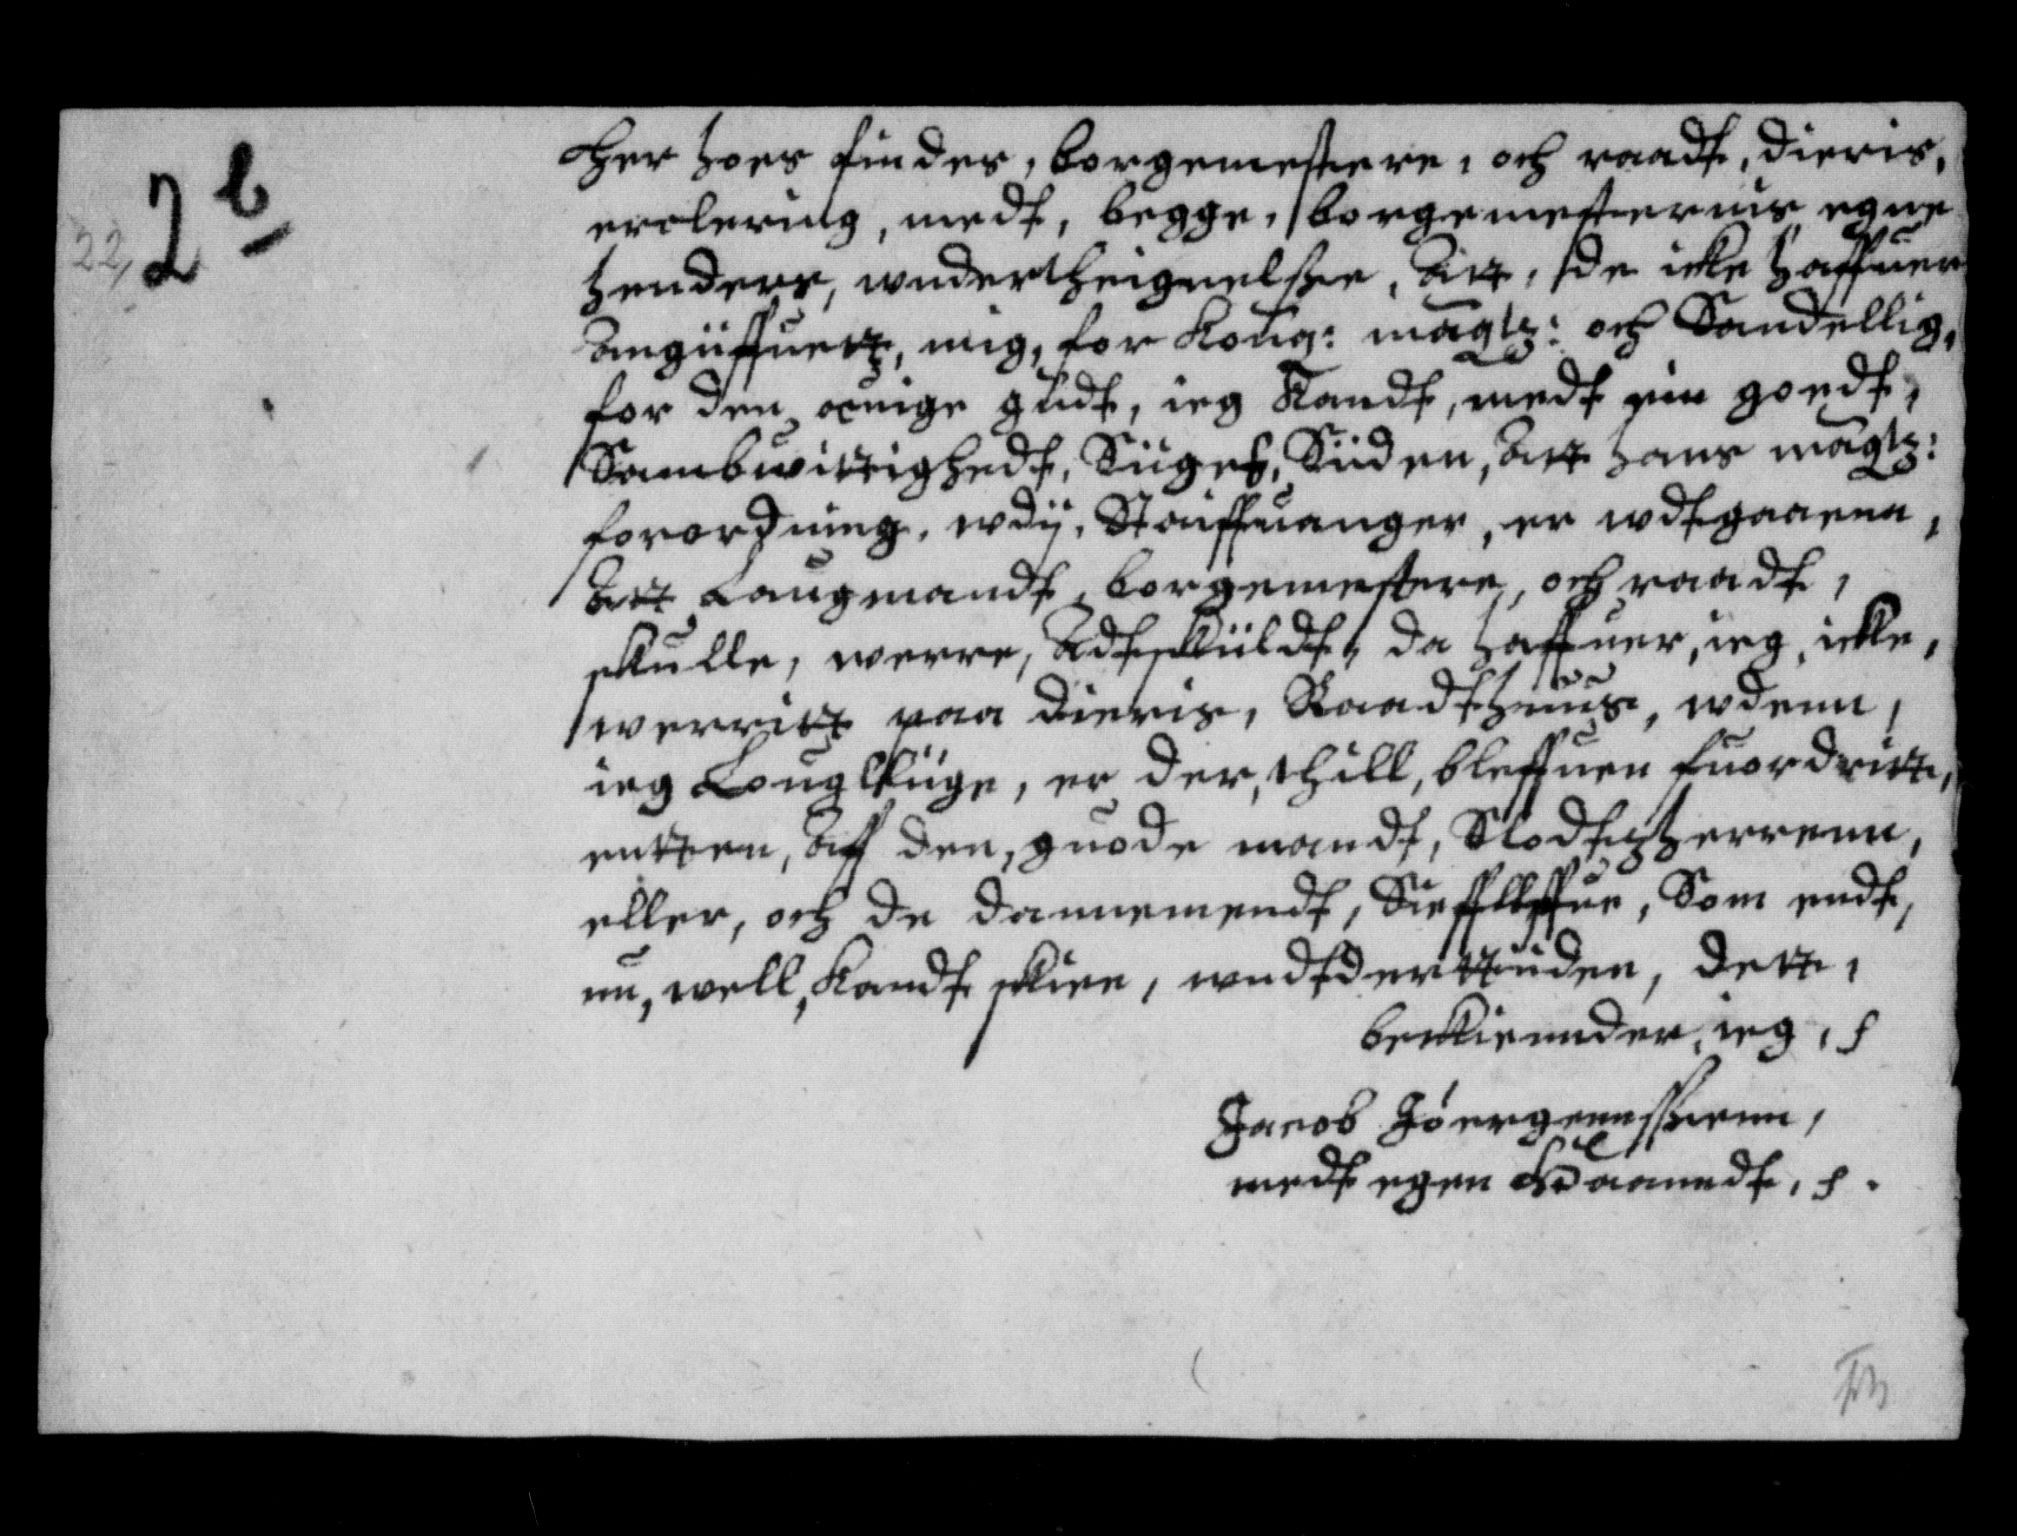 2 b
22,
Her hoes findes, borgemestere, och raadt, dieris,
erclering, medt, begge, borgemesternis egne
henders, wndertheignelsße, Att, de icke haffuer
Angiiffuett, mig, for Kong: magtz: och Sandellig,
for den euige gudt, ieg Kandt, medt een goedt,
Sambwittighedt, Siiges, Siiden, Att hans magtz:
forordning, wdij, Stauffuanger, er wdtgaaenn,
Att Laugmandt, borgemestere, och raadt,
skulle, werre, Adtskiildt, da haffuer, ieg, icke,
werritt paa dieris, Raadthuus, wdenn,
ieg Louglliige, er der, thill, bleffuen fuordritt,
entten, Aff den, guode mandt, Slodtzherrenn,
eller, och de dannemendt, Sielffue, Som endt,
nu, well, Kandt skiee, wndtderttiiden, dett,
beckiennder, ieg,
Jacob Jöergennsßenn,
medt egen Haanndt,